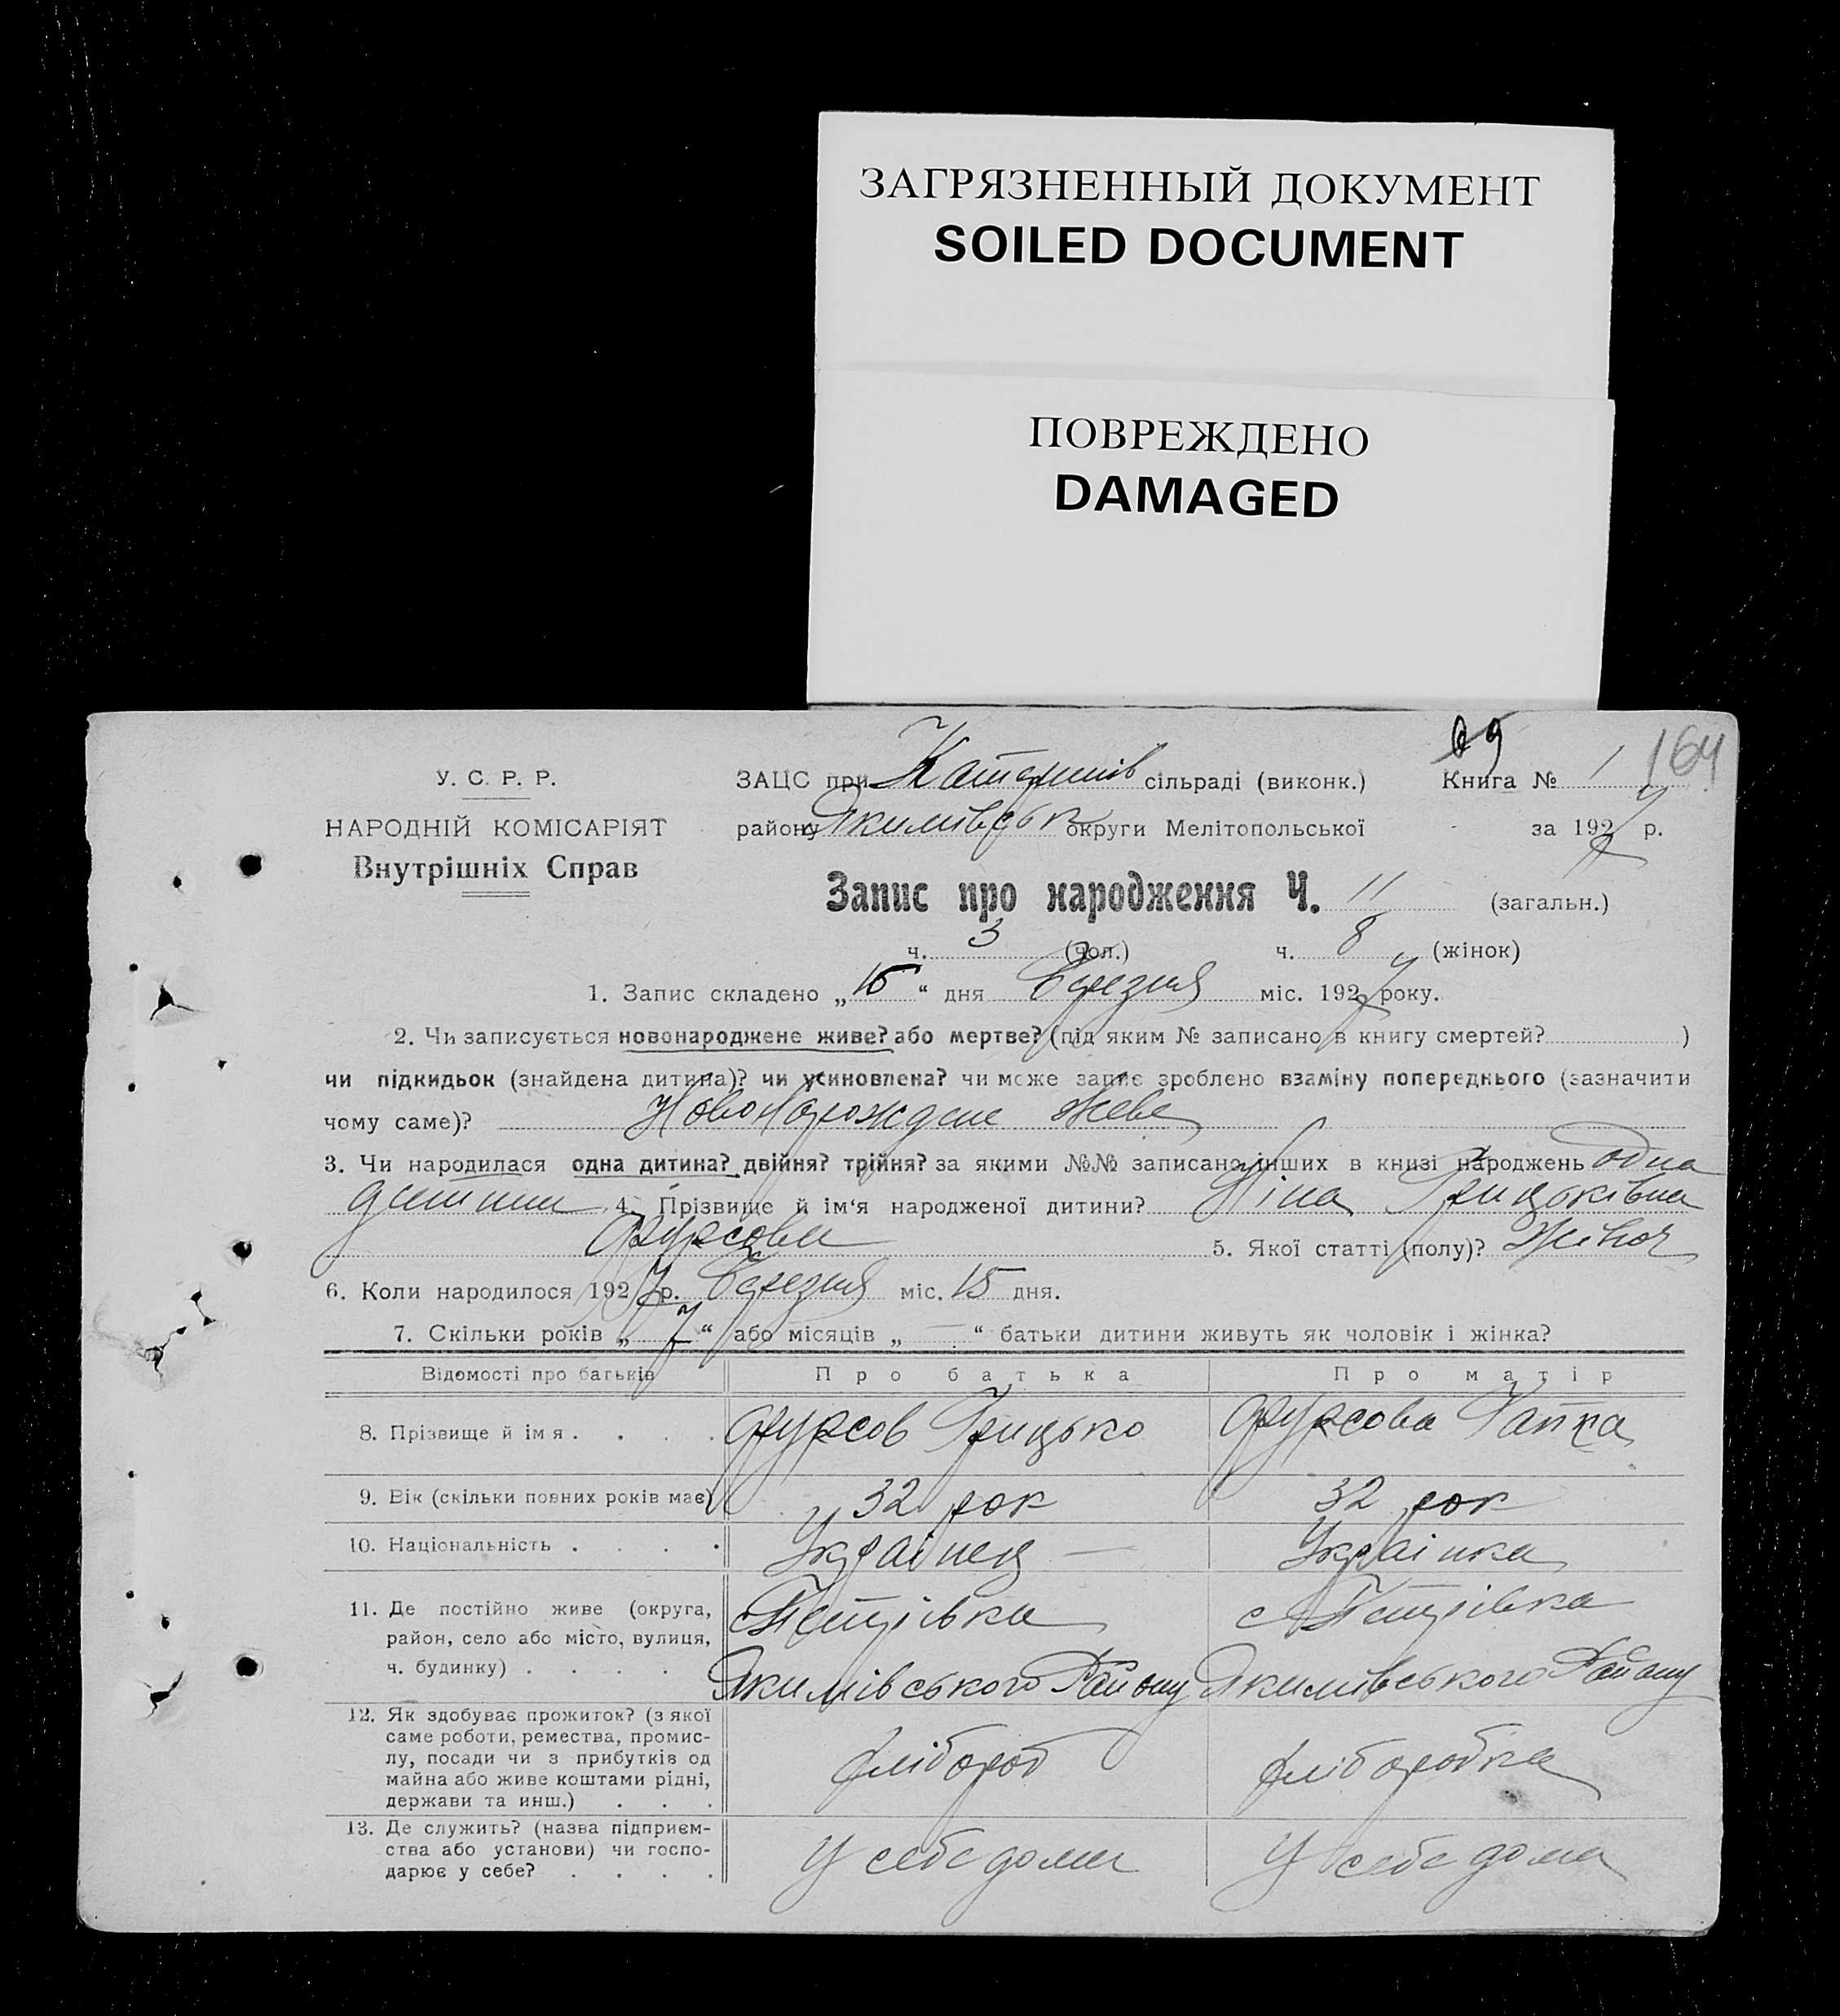 ЗАГРЯЗНЕННЫЙ ДОКУМЕНТ
SOILED DOCUMENT
ПОВРЕЖДЕНО
DAMAGED
69 164
У. С. Р. Р.
НАРОДНІЙ КОМІСАРІЯТ
Внутрішніх Справ
ЗАЦС при Катеринів сільраді (виконк.) Книга № 1
району Якимівськ округи Мелітопольської за 1927 р.
Запис про народження Ч. 11 (загальн.)
ч. 3 (чол.) ч. 8 (жінок)
1. Запис складено „15“ дня Березня міс. 1927 року.
2. Чи записується новонароджене живе? або мертве? (під яким № записано в книгу смертей? )
чи підкидьок (знайдена дитина)? чи усиновлена? чи може запис зроблено взаміну попереднього (зазначити
чому саме)? Новонарождене живе
3. Чи народилася одна дитина? двійня? трійня? за якими №№ записано інших в книзі народжень одна
дитина 4. Прізвище й ім‘я народженої дитини? Ніна Грицьківна
Фурсова 5. Якої статті (полу)? Жіноч
6. Коли народилося 1927 р. Березня міс. 15 дня.
7. Скільки років „7“ або місяців „—“ батьки дитини живуть як чоловік і жінка?
Відомості про батьків Про батька Про матір
8. Прізвище й імя . . . . Фурсов Грицько Фурсова Гапка
9. Вік (скільки повних років має) 32 рок 32 рок
10. Національність . . . . Українец — Українка
11. Де постійно живе (округа, с Петрівка с Петрівка
район, село або місто, вулиця,
ч. будинку) . . . . Якимівського Району Якимівського Району
12. Як здобуває прожиток? (з якої
саме роботи, ремества, промис-
лу, посади чи з прибутків од хлібороб хліборобка
майна або живе коштами рідні,
держави та инш.) . . .
13. Де служить? (назва підприєм-
ства або установи) чи госпо- У себе дома У себе дома
дарює у себе? . . . .